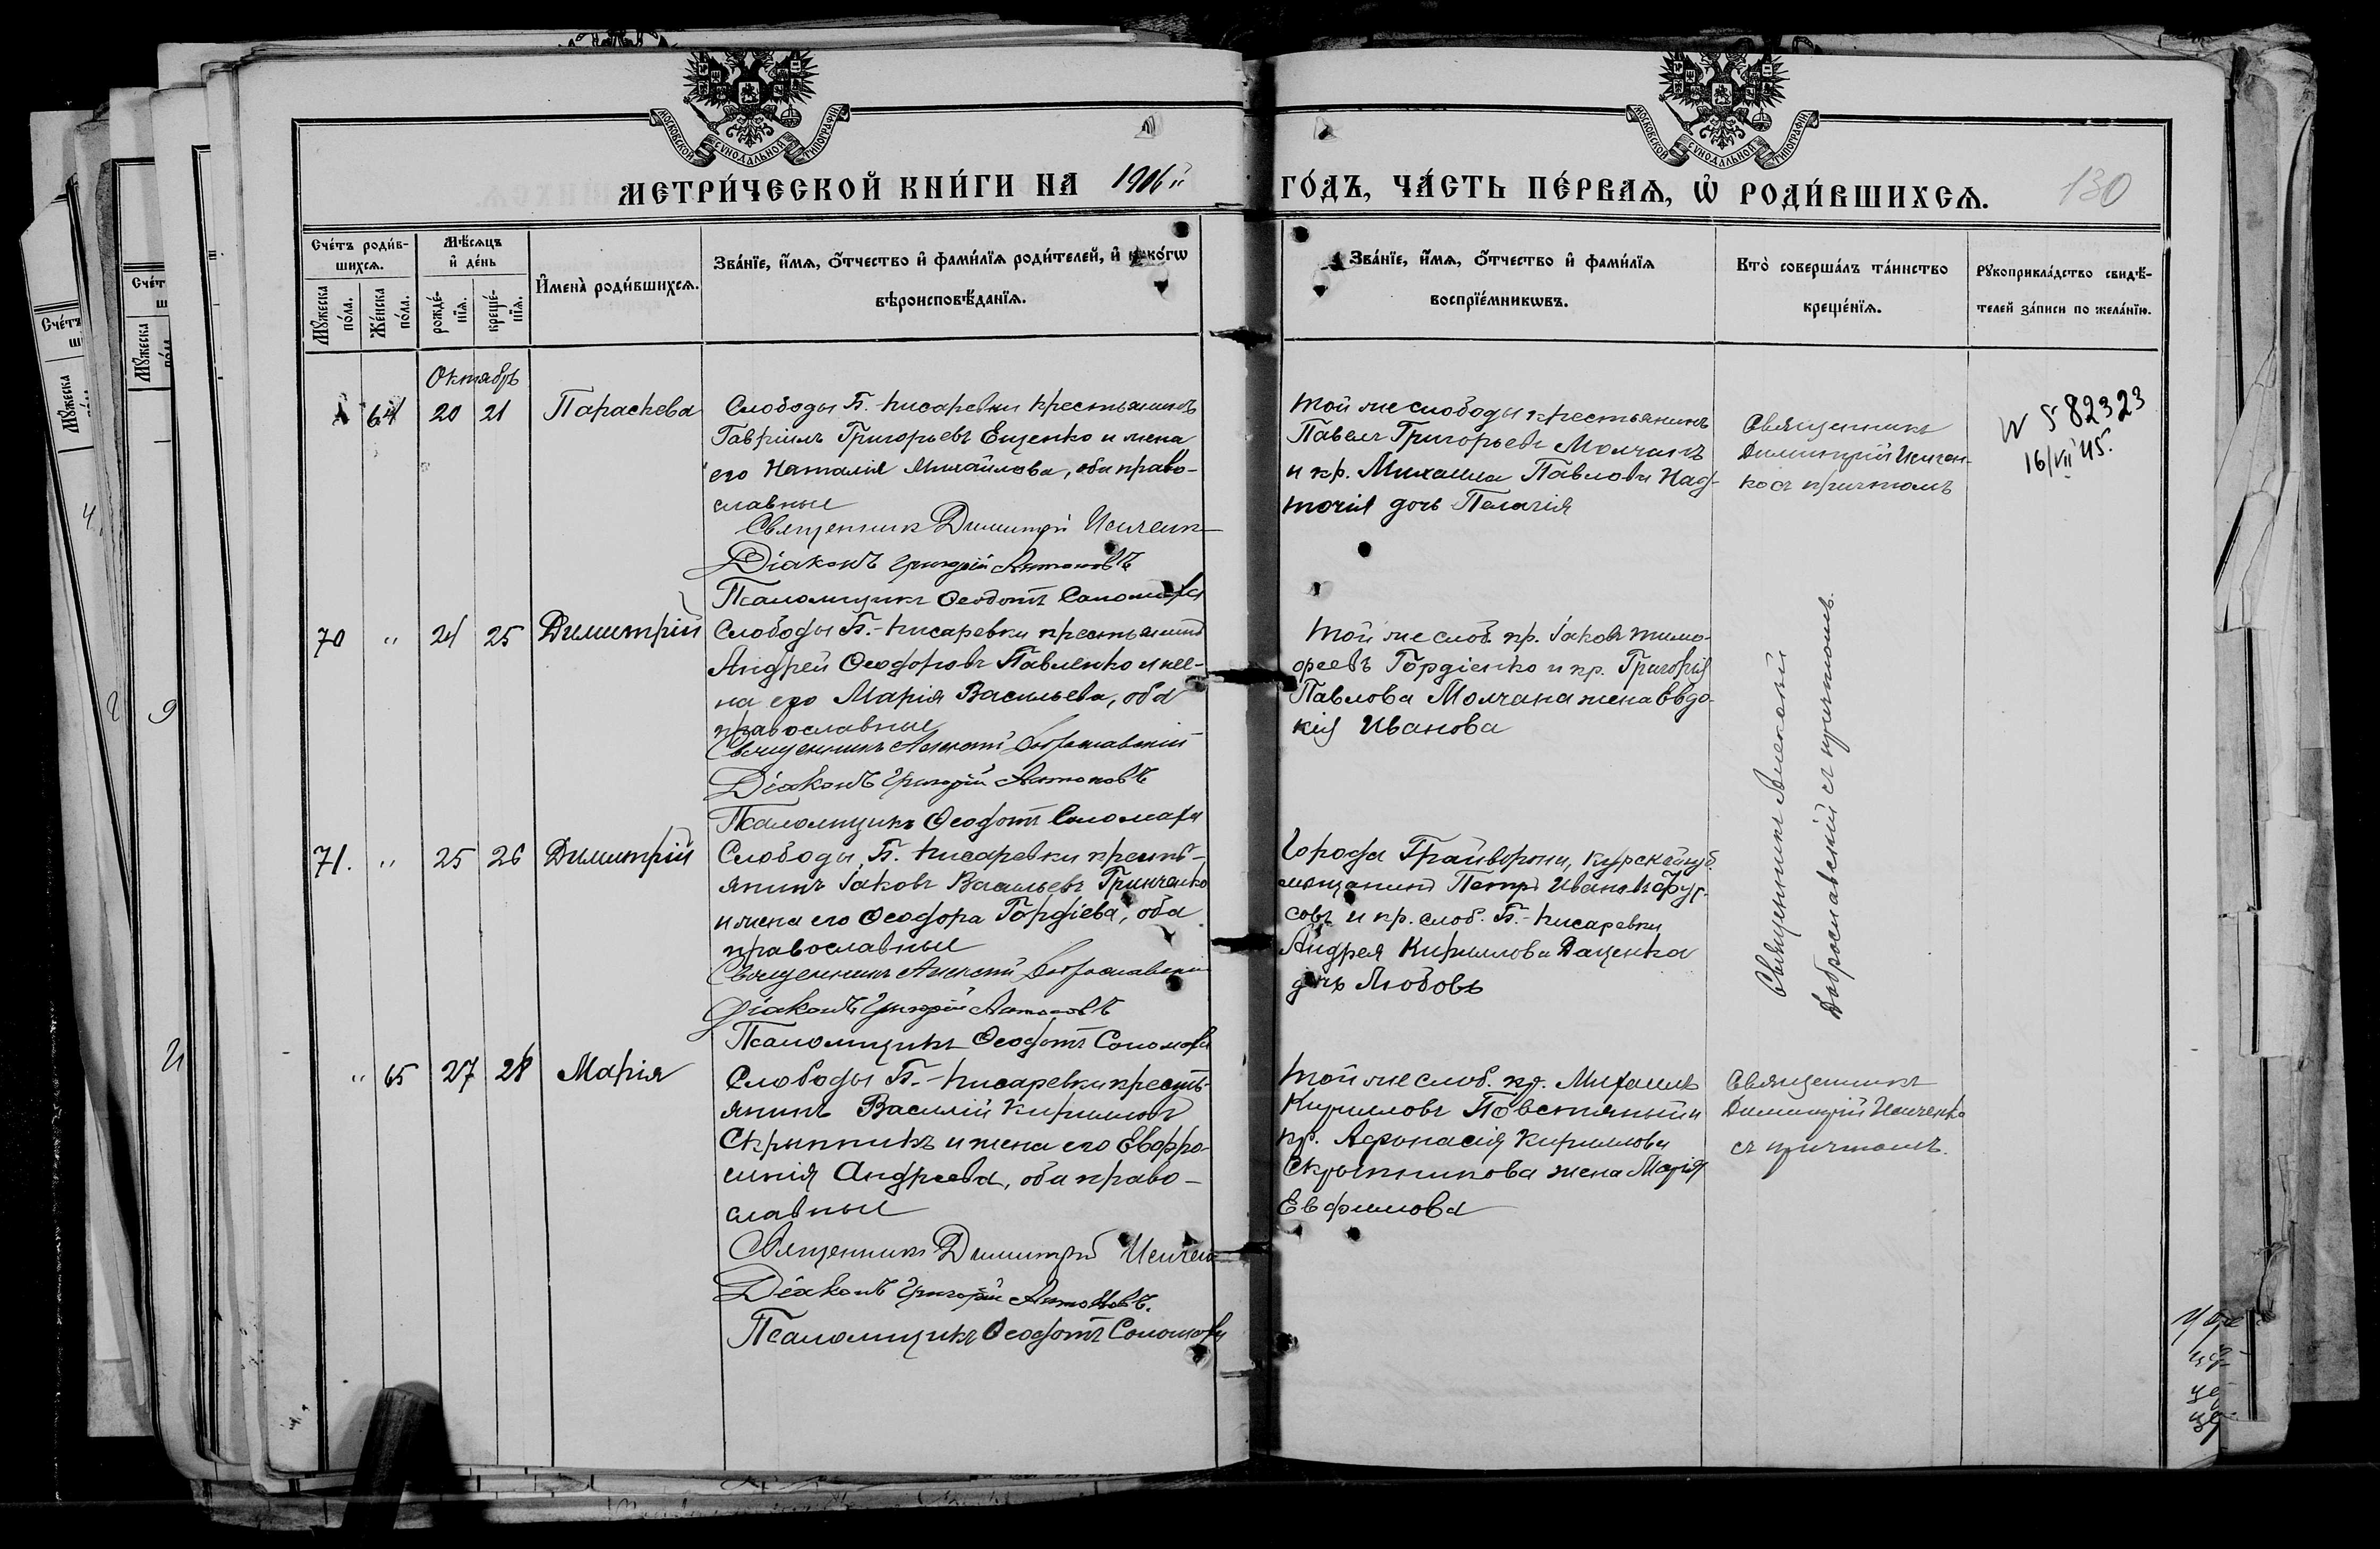 МОСКОВСКОЙ СУНОДАЛЬНОЙ ТИПОГРАФІИ
МОСКОВСКОЙ СУНОДАЛЬНОЙ ТИПОГРАФІИ
МЕТРИ́ЧЕСКОЙ КНИ́ГИ НА 1906й ГО́ДЪ, ЧА́СТЬ ПЕ́РВАѦ, Ѡ҆ РОДИ́ВШИХСѦ.
130
Сче́тъ роди́в-
шихсѧ.
Мꙋ́жеска
по́ла.
Же́нска
по́ла.
Мѣ́сѧцъ
и҆ де́нь
рожде́-
нїѧ.
креще́-
нїѧ.
И҆мена̀ роди́вшихсѧ.
Зва́нїе, и҆́мѧ, о҆́тчество и҆ фами́лїѧ роди́телей, и҆ како́гѡ
вѣроисповѣ́данїѧ.
Зва́нїе, и҆́мѧ, о҆́тчество и҆ фами́лїѧ
воспрїе́мникѡвъ.
Кто̀ соверша́лъ та́инство
креще́нїѧ.
Рꙋкоприкла́дство свидѣ́-
телей за́писи по жела́нїю.
Октябрь
64 20 21 Параскева
Слободы Б.-Писаревки крестьянинъ
Гавріилъ Григорьевъ Ещенко и жена
его Наталія Михайлова, оба право-
славные
Священникъ Димитрій Исиченк
Діаконъ Григорій Антоновъ
Псаломщикъ Ѳеодотъ Соломаха
Той же слободы крестьянинъ
Павелъ Григорьевъ Молчанъ
и кр. Михаила Павлова Над-
точія дочь Пелагія
Священникъ
Димитрій Исичен-
ко съ причтомъ
N 582323
16/VII 45.
70 " 24 25 Димитрій
Слободы Б.-Писаревки крестьянинъ
Андрей Ѳеодоровъ Павленко и же-
на его Марія Васильева, оба
православные
Священникъ Алексій Доброславскій
Діаконъ Григорій Антоновъ
Псаломщикъ Ѳеодотъ Соломаха
Той же слоб. кр. Іаковъ Тимо-
ѳеевъ Гордіенко и кр. Григорія
Павлова Молчана жена Евдо-
кія Иванова
Священникъ Алексій
Доброславскій съ причтомъ.
71. " 25 26 Димитрій
Слободы Б. Писаревки кресть-
янинъ Іаковъ Васильевъ Гринченко
и жена его Ѳеодора Гордіева, оба
православные
Священникъ Алексій Доброславскій
Діаконъ Григорій Антоновъ
Псаломщикъ Ѳеодотъ Соломаха
Города Грайворона, Курской губ.
мещанинъ Петръ Ивановъ Фур-
совъ и кр. слоб. Б.-Писаревки
Андрея Кириллова Даценка
дочь Любовь
" 65 27 28 Марія
Слободы Б.-Писаревки кресть-
янинъ Василій Кирилловъ
Скрынникъ и жена его Евфро-
синія Андреева, оба право-
славные
Священникъ Димитрій Исичен
Діаконъ Григорій Антоновъ.
Псаломщикъ Ѳеодотъ Соломаха
Той же слоб. кр. Михаилъ
Кирилловъ Повстяный и
кр. Афанасія Кириллова
Скрынникова жена Марія
Евфимова
Священникъ
Димитрій Исиченко
съ причтомъ.